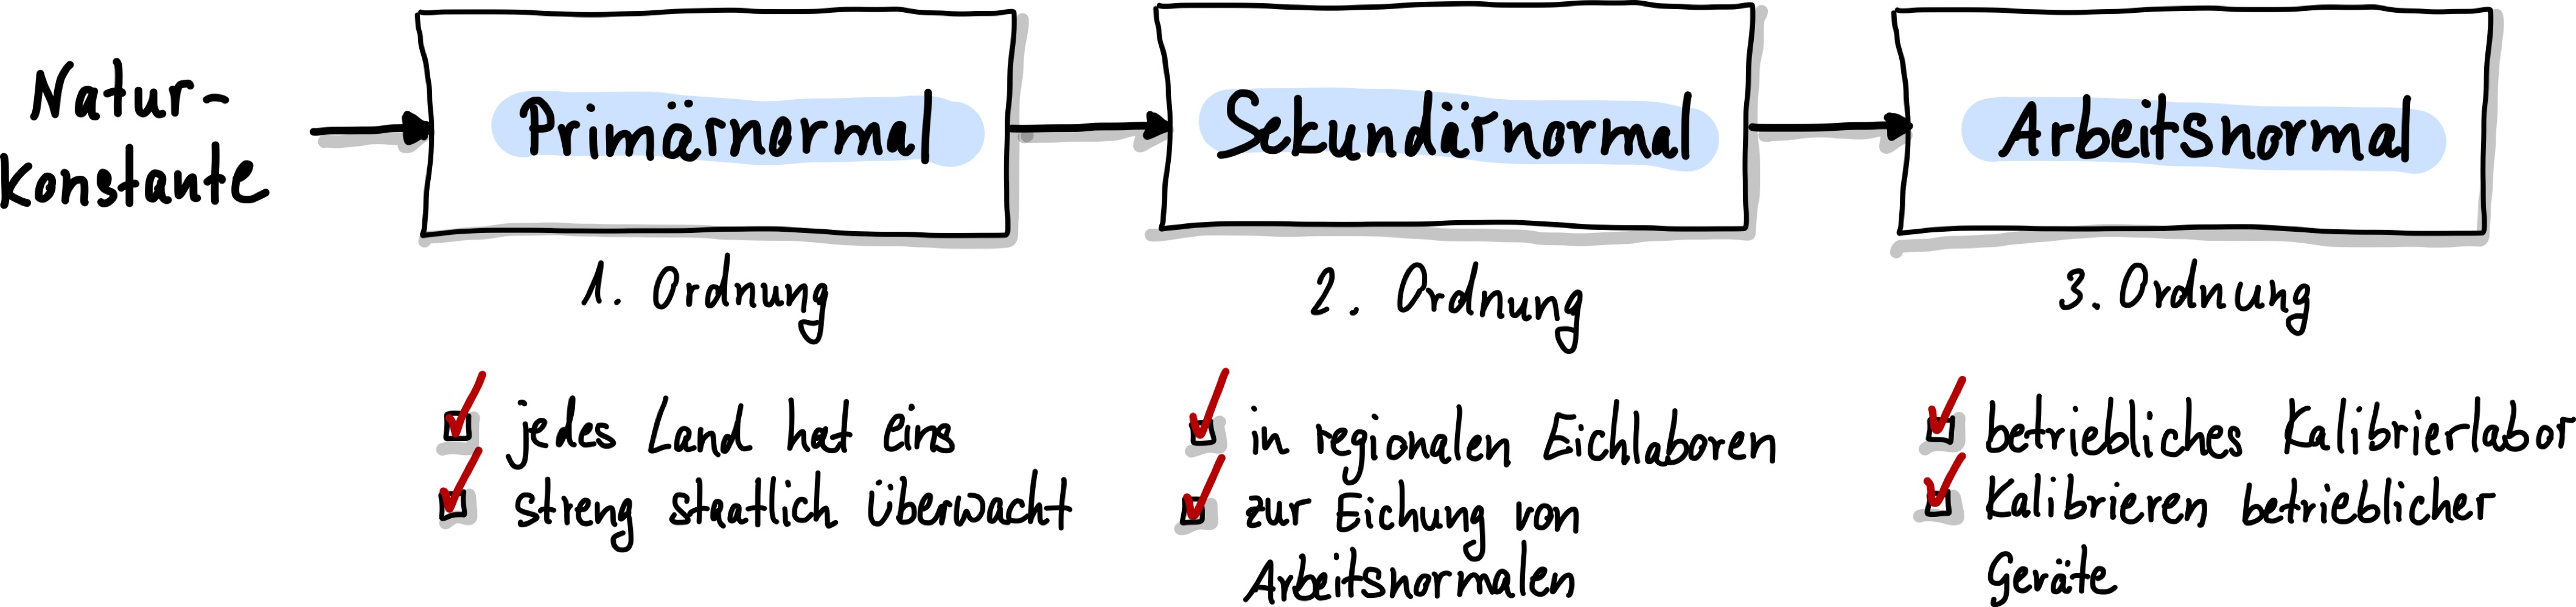 Natur-
konstante
Primärnormal
1. Ordnung
jedes Land hat eins
streng staatlich überwacht
Sekundärnormal
2. Ordnung
in regionalen Eichlaboren
zur Eichung von
Arbeitsnormalen
Arbeitsnormal
3. Ordnung
betriebliches Kalibrierlabor
Kalibrieren betrieblicher
Geräte